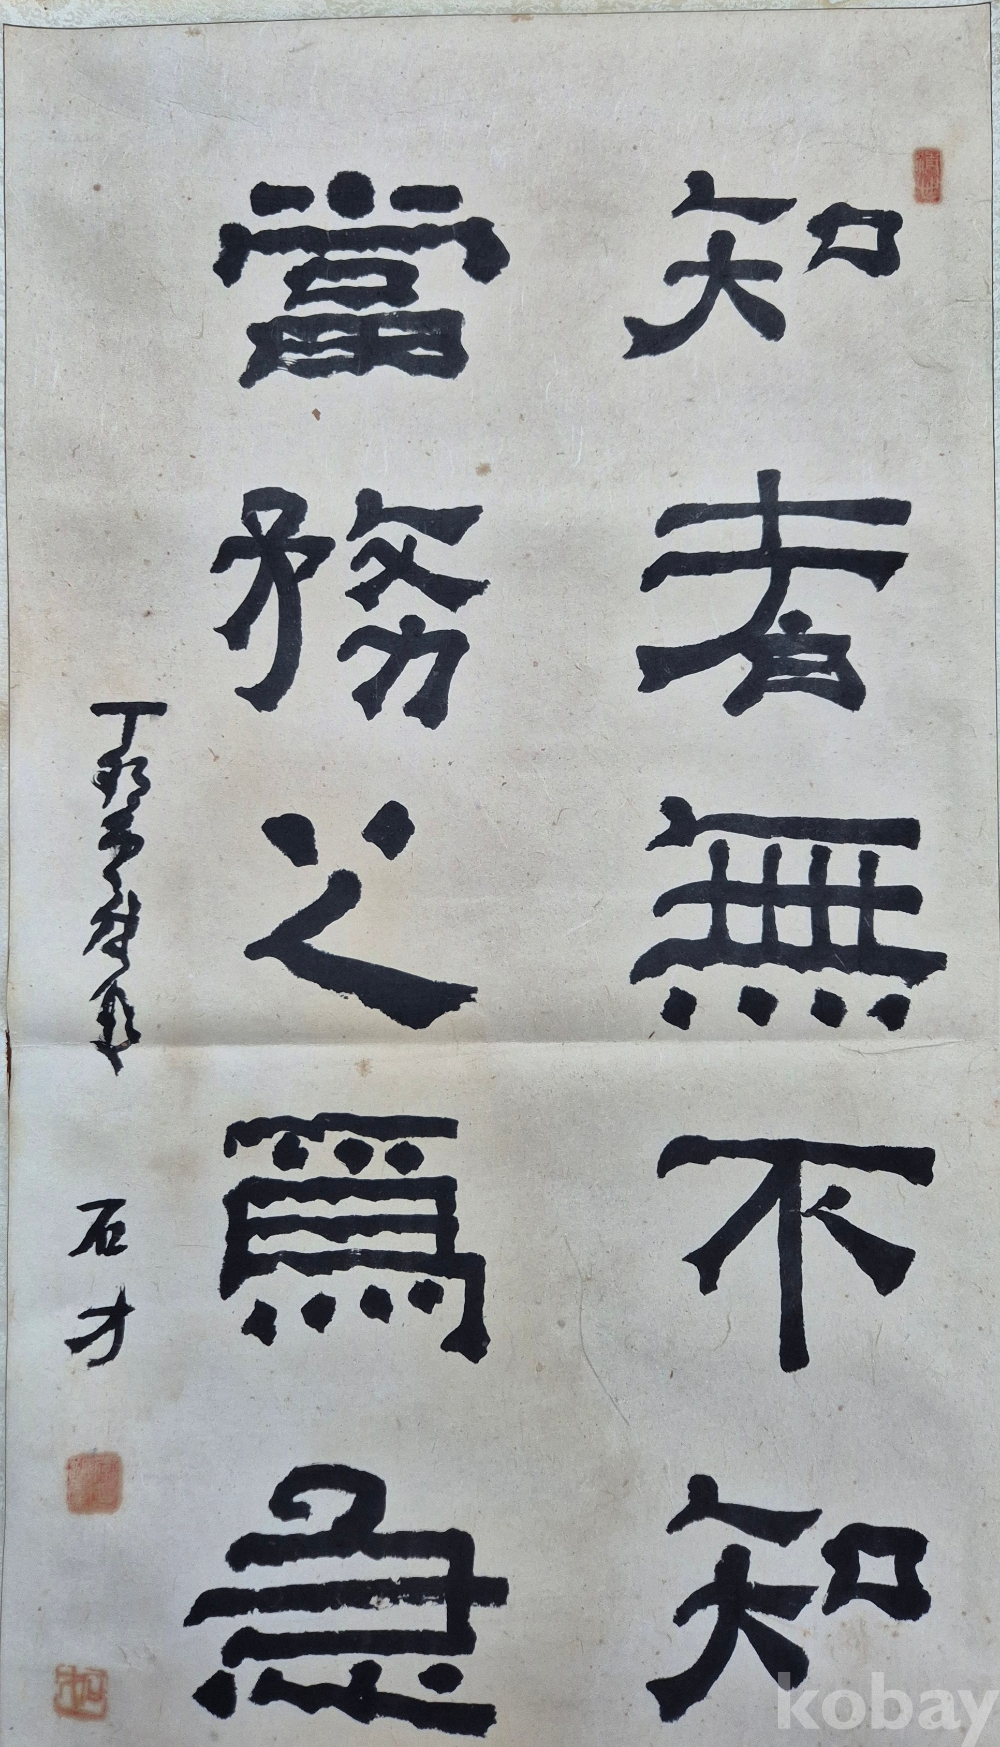 知者無不知
當務之爲急
石才
kobay